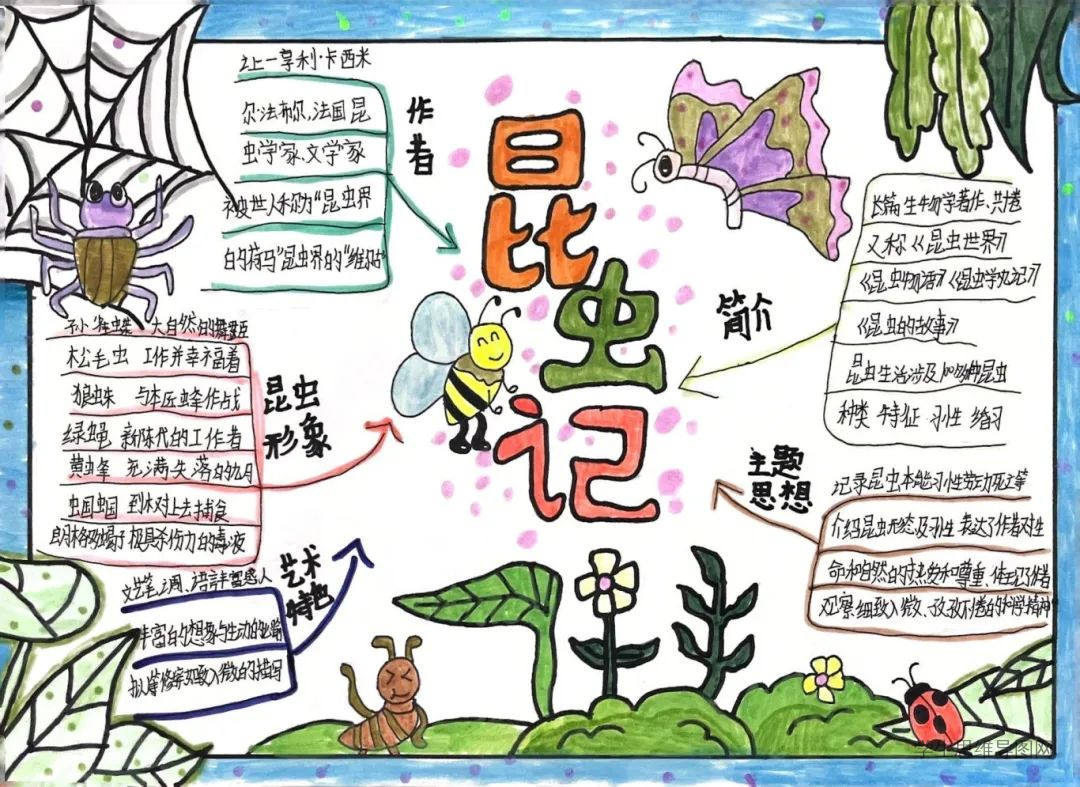 昆虫记
作者
让一享利·卡西米
尔·法布尔,法国昆
虫学家、文学家
被世人称为“昆虫界
的荷马”昆虫界的“维尔吉
简介
长篇生物学著作、共十卷
又称《昆虫世界》
《昆虫物语》《昆虫学札记》
《昆虫的故事》
昆虫生活涉及100多种昆虫
种类 特征 习性 婚习
昆虫
形象
大自然的舞姬
松毛虫 工作并幸福着
狼蛛 与木匠蜂作战
绿蝇 新陈代的工作者
黄蜂 充满失落的九月
蝈蝈 到树上去捕食
朗格多蝎子 极具杀伤力的毒液
主题
思想
记录昆虫本能习性劳动死亡等
介绍昆虫形态及习性 表达了作者对生
命和自然的热爱和尊重、体现了作者
观察细致入微、孜孜不倦的科学精神
艺术
特色
文笔 语言丰富
丰富的想象与生动的比喻
拟 细致入微的描写